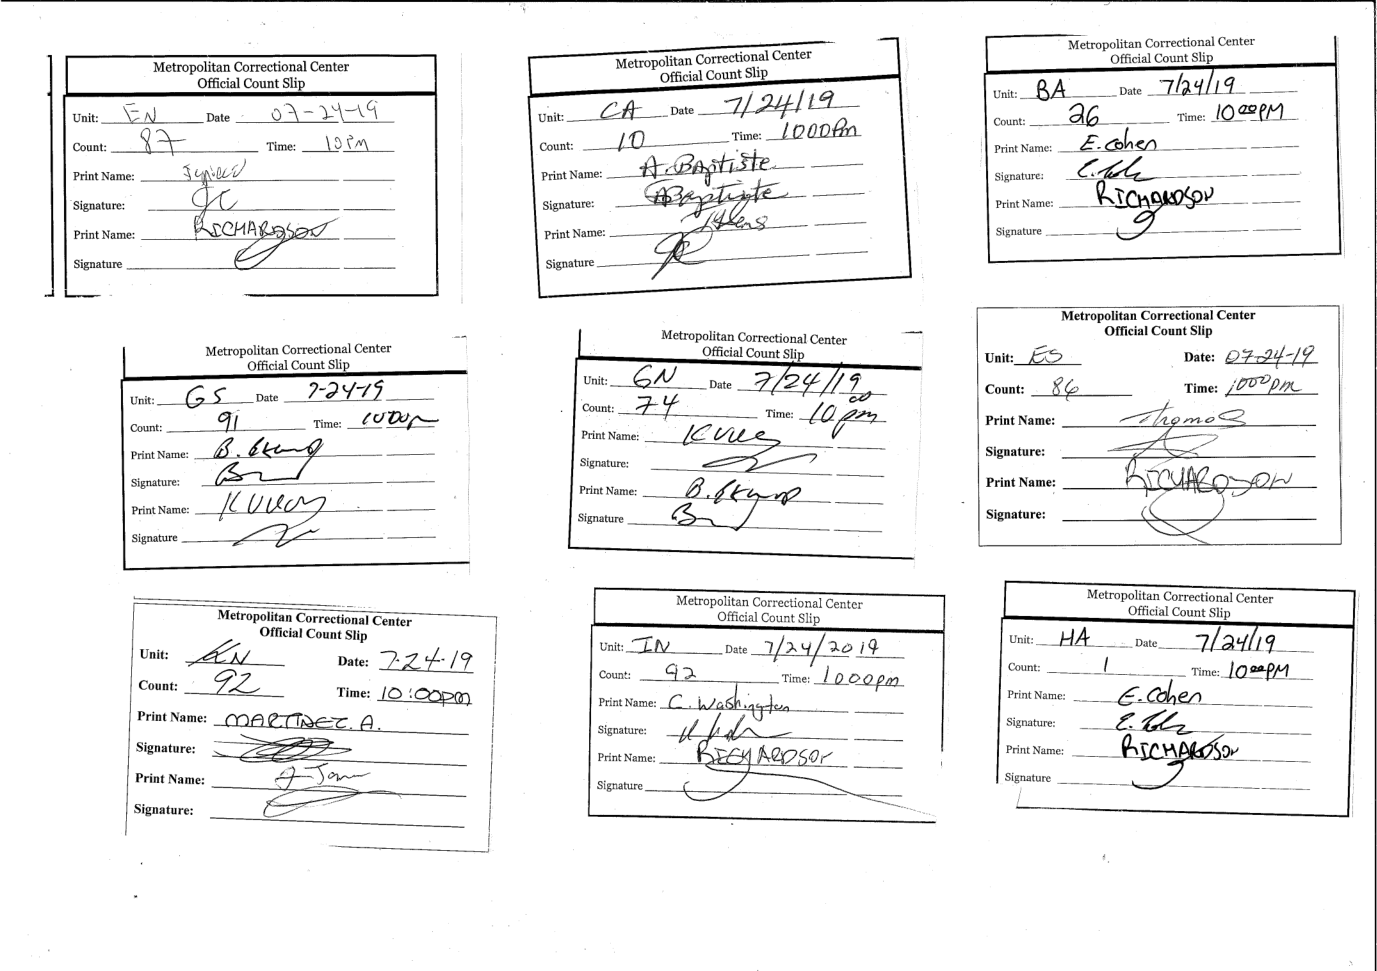 Metropolitan Correctional Center
Official Count Slip
Unit: EN Date 07-24-19
Count: 87 Time: 10PM
Print Name:
Signature:
Print Name: RICHARDSON
Signature
Metropolitan Correctional Center
Official Count Slip
Unit: CA Date 7/24/19
Count: 10 Time: 1000Pm
Print Name: A. Baptiste
Signature: ABaptiste
Print Name:
Signature
Metropolitan Correctional Center
Official Count Slip
Unit: BA Date 7/24/19
Count: 26 Time: 1000PM
Print Name: E. Cohen
Signature:
Print Name: RICHARDSON
Signature
Metropolitan Correctional Center
Official Count Slip
Unit: GS Date 7-24-19
Count: 91 Time: 1000pm
Print Name: B.
Signature:
Print Name: K
Signature
Metropolitan Correctional Center
Official Count Slip
Unit: GN Date 7/24/19
Count: 74 Time: 1000 pm
Print Name: K
Signature:
Print Name: B.
Signature
Metropolitan Correctional Center
Official Count Slip
Unit: ES Date: 07-24-19
Count: 86 Time: 1000pm
Print Name: Thomas
Signature:
Print Name: RICHARDSON
Signature:
Metropolitan Correctional Center
Official Count Slip
Unit: KN Date: 7-24-19
Count: 92 Time: 10:00pm
Print Name: MARTINEZ. A.
Signature:
Print Name:
Signature:
Metropolitan Correctional Center
Official Count Slip
Unit: IN Date 7/24/2019
Count: 92 Time: 1000pm
Print Name: C. Washington
Signature:
Print Name: RICHARDSON
Signature
Metropolitan Correctional Center
Official Count Slip
Unit: HA Date 7/24/19
Count: 1 Time: 1000PM
Print Name: E. Cohen
Signature:
Print Name: RICHARDSON
Signature